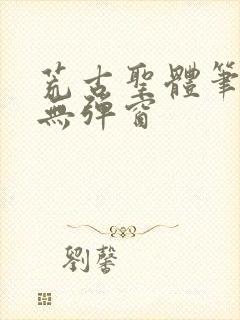 荒古聖體筆
無彈窗
劉馨